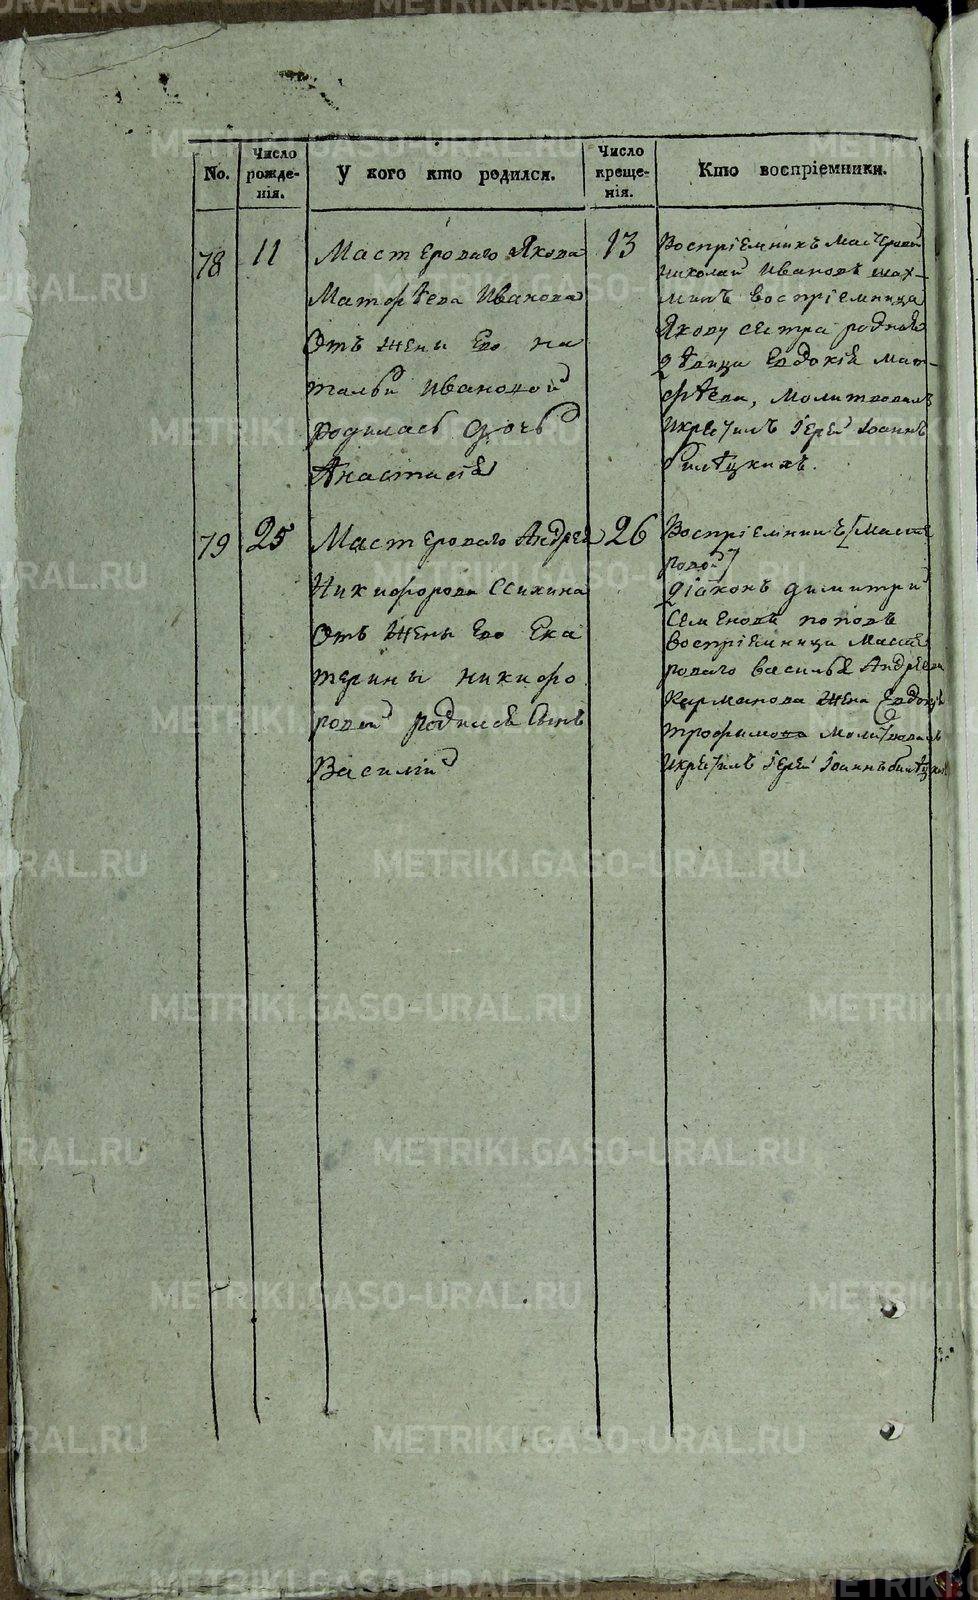 No.
Число рожде-нія.
У кого кто родился.
Число креще-нія.
Кто воспріемники.
78
11
Мастероваго Якова
Матфѣева Иванова
Отъ жены Его На
тальи Ивановой
родилась дочь
Анастасія
13
Воспріемникъ Мастеровой
Николай Ивановъ шах-
минъ воспріемница
Якову сестра родная
дѣвица Евдокія Мат-
фѣева, Молитвовалъ
Икрестилъ Іерей Іоаннъ
79
25
Мастероваго Андрея
Никифорова
Отъ жены Его Ека
терины Никифо
ровой родился сынъ
Василій
26
Воспріемникъ [Масте
ровой]
Діаконъ Димитрій
Семеновъ поповъ
воспріемница Масте
роваго Василья Андреева
Карманова жена Евдокія
Трофимова Молитвовалъ
Икрестилъ Іерей Іоаннъ
METRIKI.GASO-URAL.RU